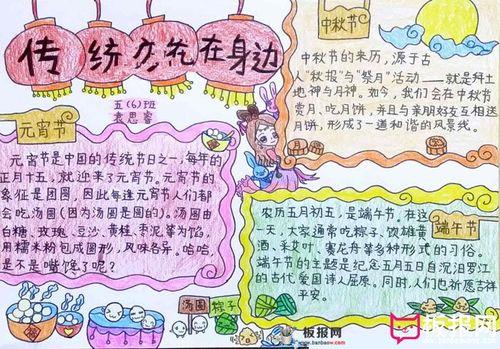 传统文化在身边
五(6)班
袁思睿
元宵节
元宵节是中国的传统节日之一,每年的
正月十五,就迎来了元宵节。元宵节的
象征是团圆,因此每逢元宵节人们都
会吃汤圆(因为汤圆是圆的)。汤圆由
白糖、玫瑰、豆沙、黄桂、枣泥等为馅,
用糯米粉包成圆形,风味各异。哈哈,
是不是嘴馋了呢?
中秋节
中秋节的来历,源于古
人"秋报"与"祭月"活动——就是拜土
地神与月神。如今,我们会在中秋节
赏月、吃月饼,并且与亲朋好友互相送
月饼,形成了一道和谐的风景线。
农历五月初五,是端午节。在这
一天,大家通常吃粽子、饮雄黄
酒、采艾叶、赛龙舟等多种形式的习俗。
端午节的主题是纪念五月五日自沉汨罗江
的古代爱国诗人屈原。同时,人们也祈愿吉祥
平安。
端午节
汤圆
粽子
板报网
www.banbaow.com
板报网
www.banbaow.com